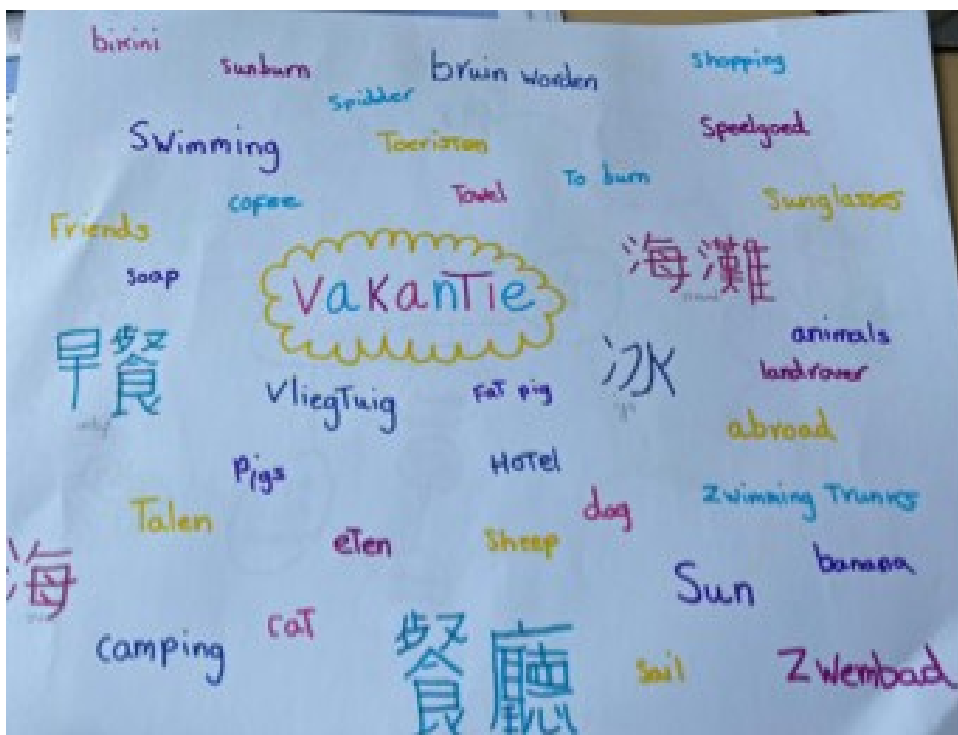 bikini
sunburn
bruin worden
shopping
spidder
Swimming
Toeristen
Speelgoed
cofee
Towel
To burn
Sunglasses
Friends
soap
vakantie
海灘
早餐
冰
animals
landrover
Vliegtuig
fat pig
abroad
pigs
Hotel
Talen
eten
Sheep
dog
Zwimming Trunks
海
Sun
banana
camping
cat
餐廳
Sail
Zwembad